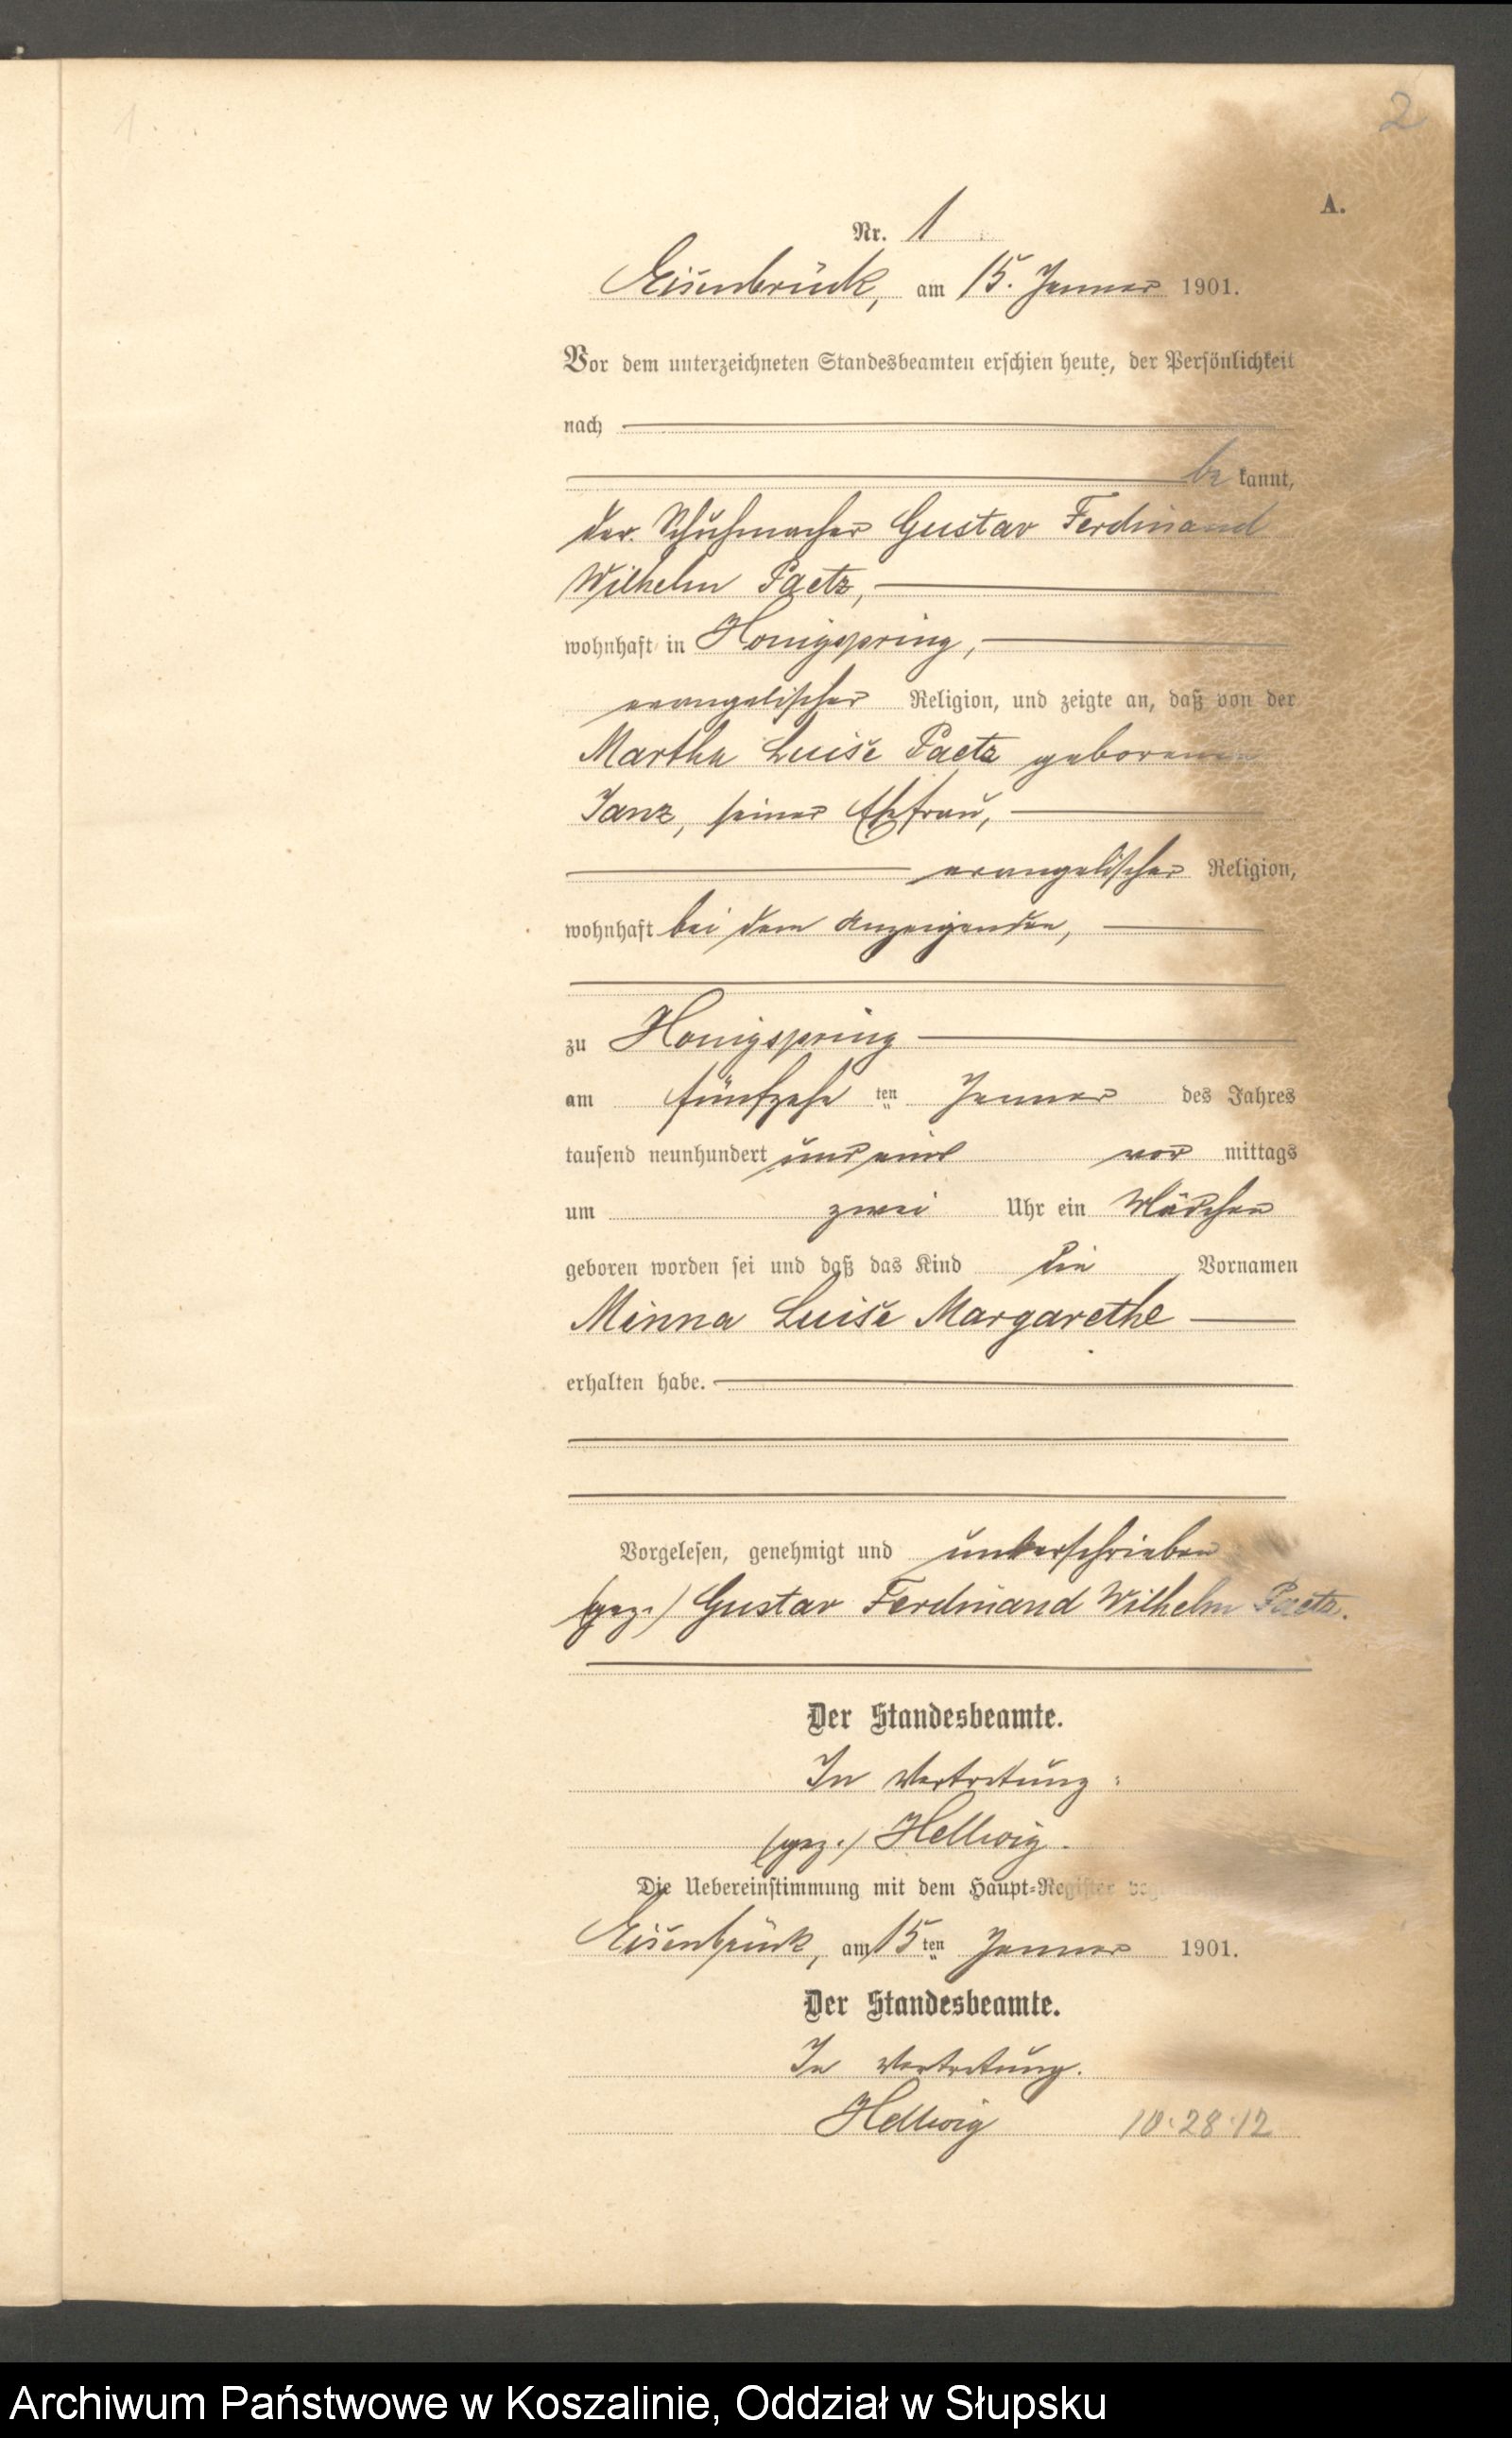 2
1
A.
Nr. 1
Eisenbrück, am 15. Januar 1901.
Vor dem unterzeichneten Standesbeamten erschien heute, der Persönlichkeit
nach
be kannt,
der Schuhmacher Gustav Ferdinand
Wilhelm Paetz,
wohnhaft in Honigspring,
evangelischer Religion, und zeigte an, daß von der
Martha Luise Paetz geborenen
Janz, seiner Ehefrau,
evangelischer Religion,
wohnhaft bei dem Anzeigenden,
zu Honigspring
am fünfzehn ten Januar des Jahres
tausend neunhundert und eins vor mittags
um zwei Uhr ein Mädchen
geboren worden sei und daß das Kind die Vornamen
Minna Luise Margarethe
erhalten habe.
Vorgelesen, genehmigt und unterschrieben
(gez.) Gustav Ferdinand Wilhelm Paetz.
Der Standesbeamte.
In Vertretung:
(gez.) Hellwig.
Die Uebereinstimmung mit dem Haupt-Register
Eisenbrück, am 15ten Januar 1901.
Der Standesbeamte.
In Vertretung.
Hellwig 10.28.12
Archiwum Państwowe w Koszalinie, Oddział w Słupsku